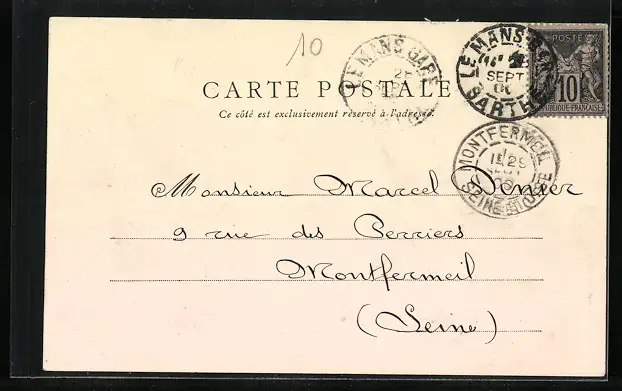 10
LE MANS GARE
CARTE POSTALE
Ce côté est exclusivement réservé à l'adresse.
LE MANS
SEPT
SARTHE
POSTES
10
RÉPUBLIQUE FRANÇAISE
MONTFERMEIL
SEINE ET OISE
Monsieur Marcel
9 rue des Perriers
Montfermeil
(Seine)